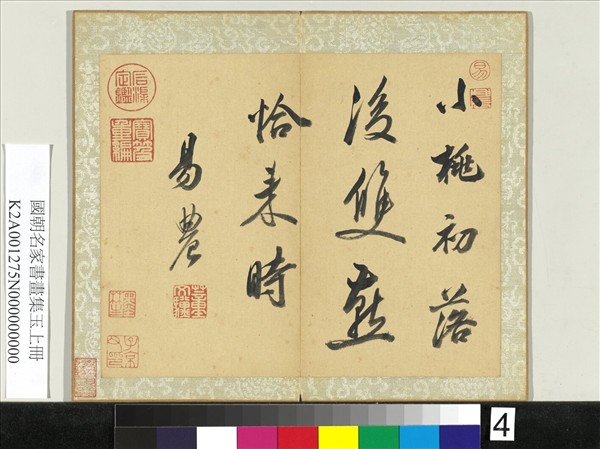 小桃初落
後雙燕
恰来時
易農
石渠定鑑
寶笈重編
國朝名家書畫集玉上冊
K2A001275N000000000
4